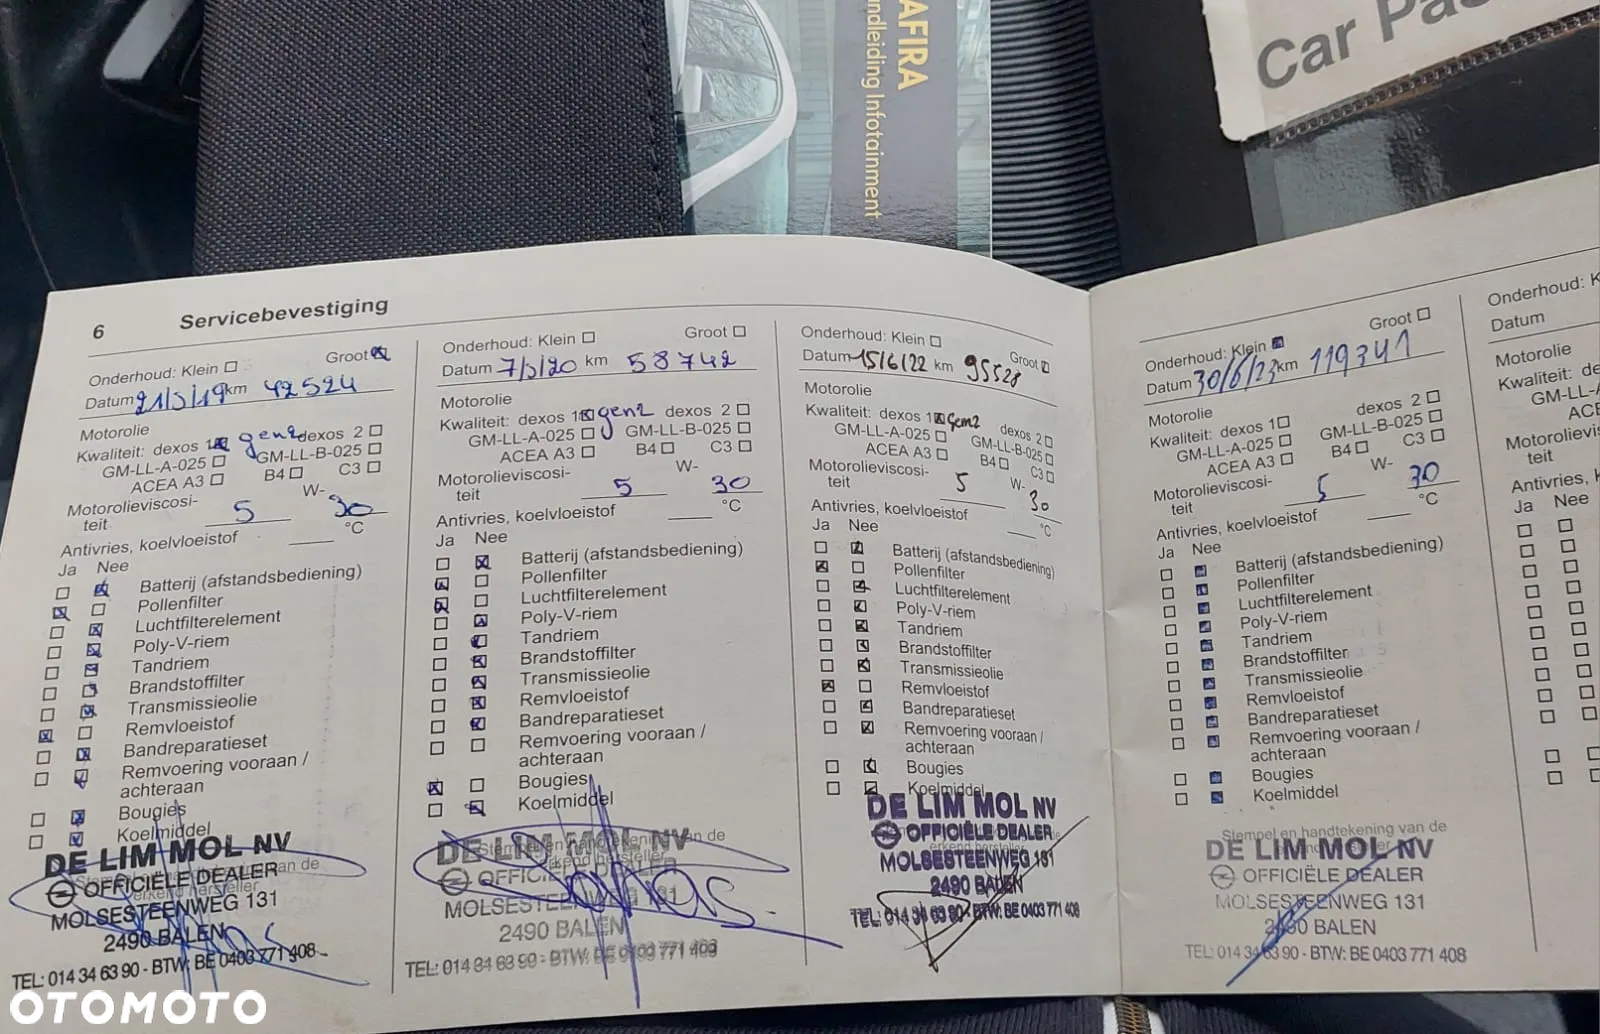 AFIRA
ndleiding Infotainment
Car Pas
6
Servicebevestiging
Onderhoud: Klein Groot
Datum 21/3/19 km 42524
Motorolie
Kwaliteit: dexos 1 gen2 dexos 2
GM-LL-A-025 GM-LL-B-025
ACEA A3 B4 C3
Motorolieviscosi-
teit 5 W- 30
Antivries, koelvloeistof °C
Ja Nee
Batterij (afstandsbediening)
Pollenfilter
Luchtfilterelement
Poly-V-riem
Tandriem
Brandstoffilter
Transmissieolie
Remvloeistof
Bandreparatieset
Remvoering vooraan /
achteraan
Bougies
Koelmiddel
Stempel en handtekening van de
erkend hersteller
DE LIM MOL NV
OFFICIËLE DEALER
MOLSESTEENWEG 131
2490 BALEN
TEL: 014 34 63 90 - BTW: BE 0403 771 408
Onderhoud: Klein Groot
Datum 7/5/20 km 58742
Motorolie
Kwaliteit: dexos 1 gen2 dexos 2
GM-LL-A-025 GM-LL-B-025
ACEA A3 B4 C3
Motorolieviscosi-
teit 5 W- 30
Antivries, koelvloeistof °C
Ja Nee
Batterij (afstandsbediening)
Pollenfilter
Luchtfilterelement
Poly-V-riem
Tandriem
Brandstoffilter
Transmissieolie
Remvloeistof
Bandreparatieset
Remvoering vooraan /
achteraan
Bougies
Koelmiddel
Stempel en handtekening van de
erkend hersteller
DE LIM MOL NV
OFFICIËLE DEALER
MOLSESTEENWEG 131
2490 BALEN
TEL: 014 34 63 90 - BTW: BE 0403 771 408
Onderhoud: Klein Groot
Datum 15/6/22 km 95528
Motorolie
Kwaliteit: dexos 1 Gen2 dexos 2
GM-LL-A-025 GM-LL-B-025
ACEA A3 B4 C3
Motorolieviscosi-
teit 5 W- 30
Antivries, koelvloeistof °C
Ja Nee
Batterij (afstandsbediening)
Pollenfilter
Luchtfilterelement
Poly-V-riem
Tandriem
Brandstoffilter
Transmissieolie
Remvloeistof
Bandreparatieset
Remvoering vooraan /
achteraan
Bougies
Koelmiddel
DE LIM MOL NV
OFFICIËLE DEALER
MOLSESTEENWEG 131
2490 BALEN
TEL: 014 34 63 90 - BTW: BE 0403 771 408
Onderhoud: Klein Groot
Datum 30/6/23 km 119341
Motorolie
Kwaliteit: dexos 1 dexos 2
GM-LL-A-025 GM-LL-B-025
ACEA A3 B4 C3
Motorolieviscosi-
teit 5 W- 30
Antivries, koelvloeistof °C
Ja Nee
Batterij (afstandsbediening)
Pollenfilter
Luchtfilterelement
Poly-V-riem
Tandriem
Brandstoffilter
Transmissieolie
Remvloeistof
Bandreparatieset
Remvoering vooraan /
achteraan
Bougies
Koelmiddel
Stempel en handtekening van de
DE LIM MOL NV
OFFICIËLE DEALER
MOLSESTEENWEG 131
2490 BALEN
TEL: 014 34 63 90 - BTW: BE 0403 771 408
Onderhoud: K
Datum
Motorolie
Kwaliteit: de
GM-LL-
ACE
Motorolievis
teit
Antivries, k
Ja Nee
OTOMOTO